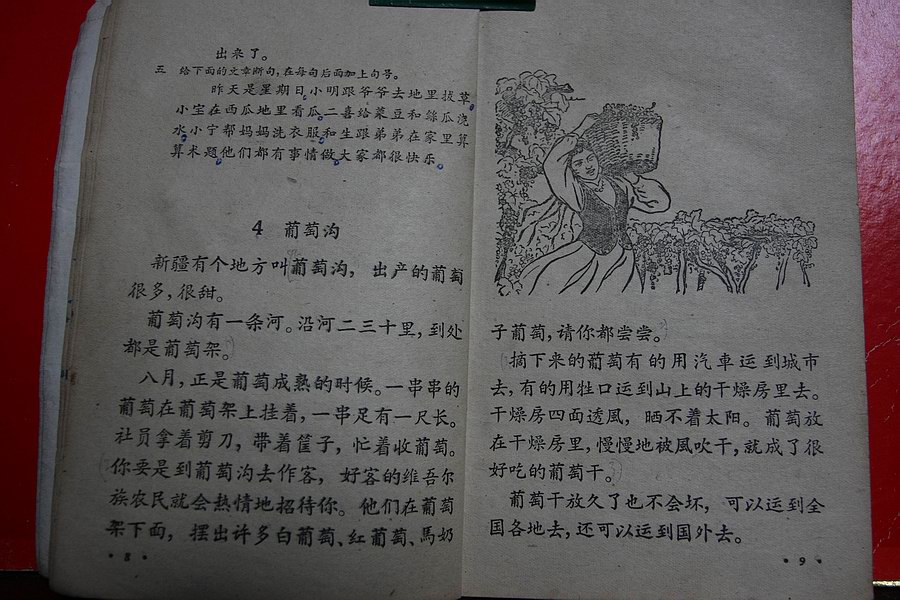 出来了。
五 给下面的文章断句,在每句后面加上句号。
昨天是星期日小明跟爷爷去地里拔草
小宝在西瓜地里看瓜二喜给菜豆和絲瓜浇
水小宁帮妈妈洗衣服和生跟弟弟在家里算
算术题他们都有事情做大家都很快乐
4 葡萄沟
新疆有个地方叫葡萄沟, 出产的葡萄
很多,很甜。
葡萄沟有一条河。沿河二三十里,到处
都是葡萄架。
八月,正是葡萄成熟的时候。一串串的
葡萄在葡萄架上挂着,一串足有一尺长。
社员拿着剪刀, 带着筐子, 忙着收葡萄。
你要是到葡萄沟去作客, 好客的维吾尔
族农民就会热情地招待你。他们在葡萄
架下面, 摆出许多白葡萄、红葡萄、馬奶
·8·
子葡萄,请你都尝尝。
摘下来的葡萄有的用汽車运到城市
去,有的用牲口运到山上的干燥房里去。
干燥房四面透風, 晒不着太阳。葡萄放
在干燥房里,慢慢地被風吹干,就成了很
好吃的葡萄干。
葡萄干放久了也不会坏, 可以运到全
国各地去,还可以运到国外去。
·9·